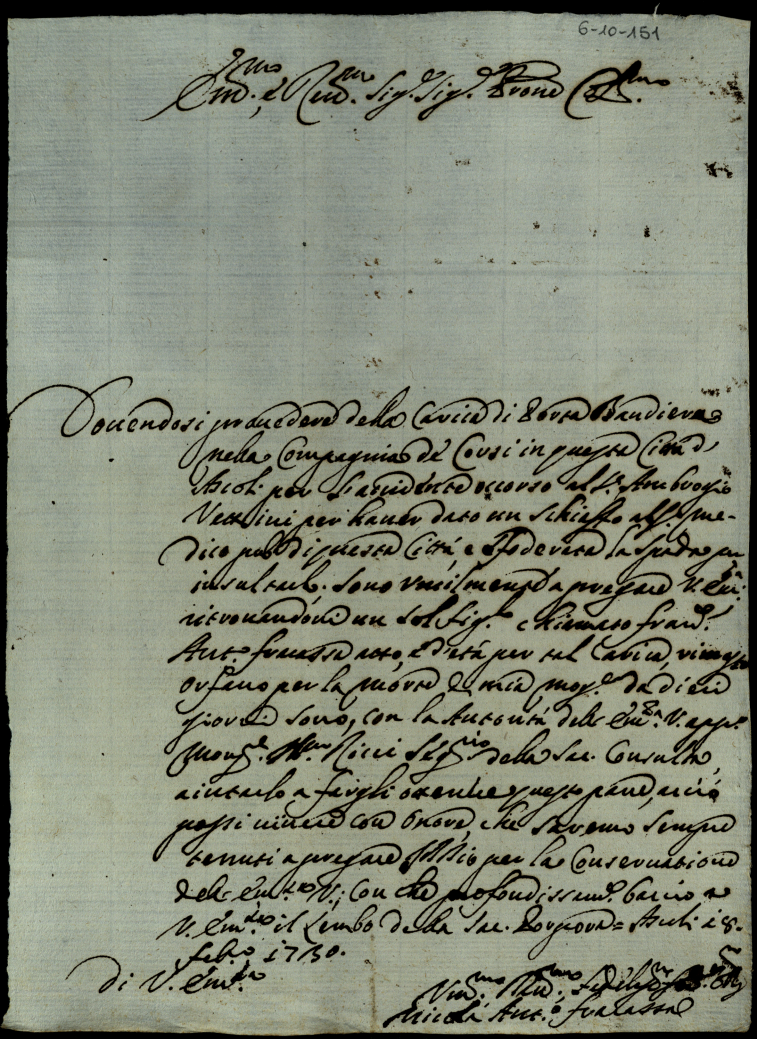 6-10-151
Em.mo e Rev.mo Sig.re Sig.re Prone Col.mo
Douendosi prouedere della Carica di Porta Bandiera
nella Compagnia de' Corsi in questa Città d'
Ascoli per l'accidente occorso al S.r Ambrogio
Vettrini per hauer dato un schiaffo al S.r me-
dico pub.o di questa Città, e sfoderata la spada per
insultarlo. Sono umilmente a pregare V. Em.za
ritrouandomi un sol figl.o chiamato Fran.co
Ant.o Fracassa atto, e d'età per tal Carica, rimasto
orfano per la morte di mia mog.e da dieci
giorni sono, con la Autorità dell' Em.za V. app.o
Mons.re Ill.mo Ricci Seg.rio della Sac. Consulta,
aiutarlo a fargli ottenere questo pane, acciò
possi uiuere con onore, che saremo sempre
tenuti a pregare Iddio per la Conseruatione
dell' Em.za V., con che profondissam.e bacio a
V. Em.za il Lembo della Sac. Porpora = Ascoli 18.
feb.o 1730.
di V. Em.za
Vm.mo Dev.mo
Nicola Ant.o Fracassa